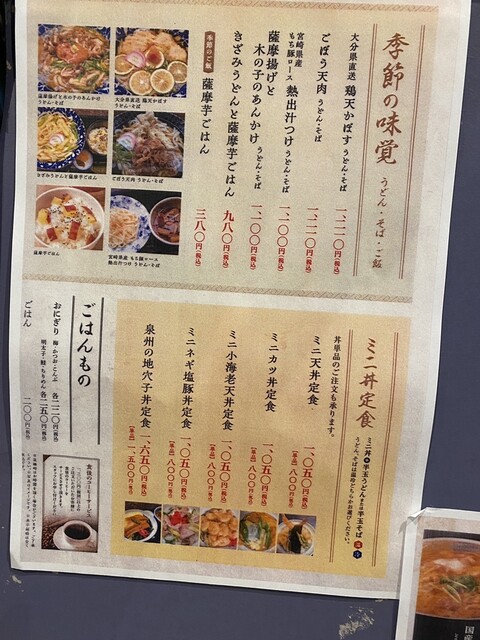 季節の味覚 うどん・そば・ご飯
大分県直送 鶏天かぼす うどん・そば 一、二一〇円(税込)
ごぼう天肉 うどん・そば 一、二一〇円(税込)
宮崎県産もち豚ロース 熱出汁つけ うどん・そば 一、一〇〇円(税込)
薩摩揚げと木の子のあんかけ うどん・そば 一、一〇〇円(税込)
きざみうどんと薩摩芋ごはん 九八〇円(税込)
季節のご飯 薩摩芋ごはん 三八〇円(税込)
薩摩揚げと木の子のあんかけ
うどん・そば
大分県直送 鶏天かぼす
うどん・そば
きざみうどんと薩摩芋ごはん
ごぼう天肉 うどん・そば
薩摩芋ごはん
宮崎県産 もち豚ロース
熱出汁つけ うどん・そば
ミニ丼定食
ミニ丼+半玉うどんまたは半玉そば
うどん、そばは温冷どちらかお選びください。
丼単品のご注文も承ります。
ミニ天丼定食 一、〇五〇円(税込)
(単品) 八〇〇円(税込)
ミニカツ丼定食 一、〇五〇円(税込)
(単品) 八〇〇円(税込)
ミニ小海老天丼定食 一、〇五〇円(税込)
(単品) 八〇〇円(税込)
ミニネギ塩豚丼定食 一、〇五〇円(税込)
(単品) 八〇〇円(税込)
泉州の地穴子丼定食 一、六五〇円(税込)
(単品) 一、五〇〇円(税込)
ごはんもの
おにぎり 梅・かつお・こんぶ 各二二〇円(税込)
明太子・鮭・ちりめん 各二五〇円(税込)
ごはん 二〇〇円(税込)
食後のコーヒーサービス
国産